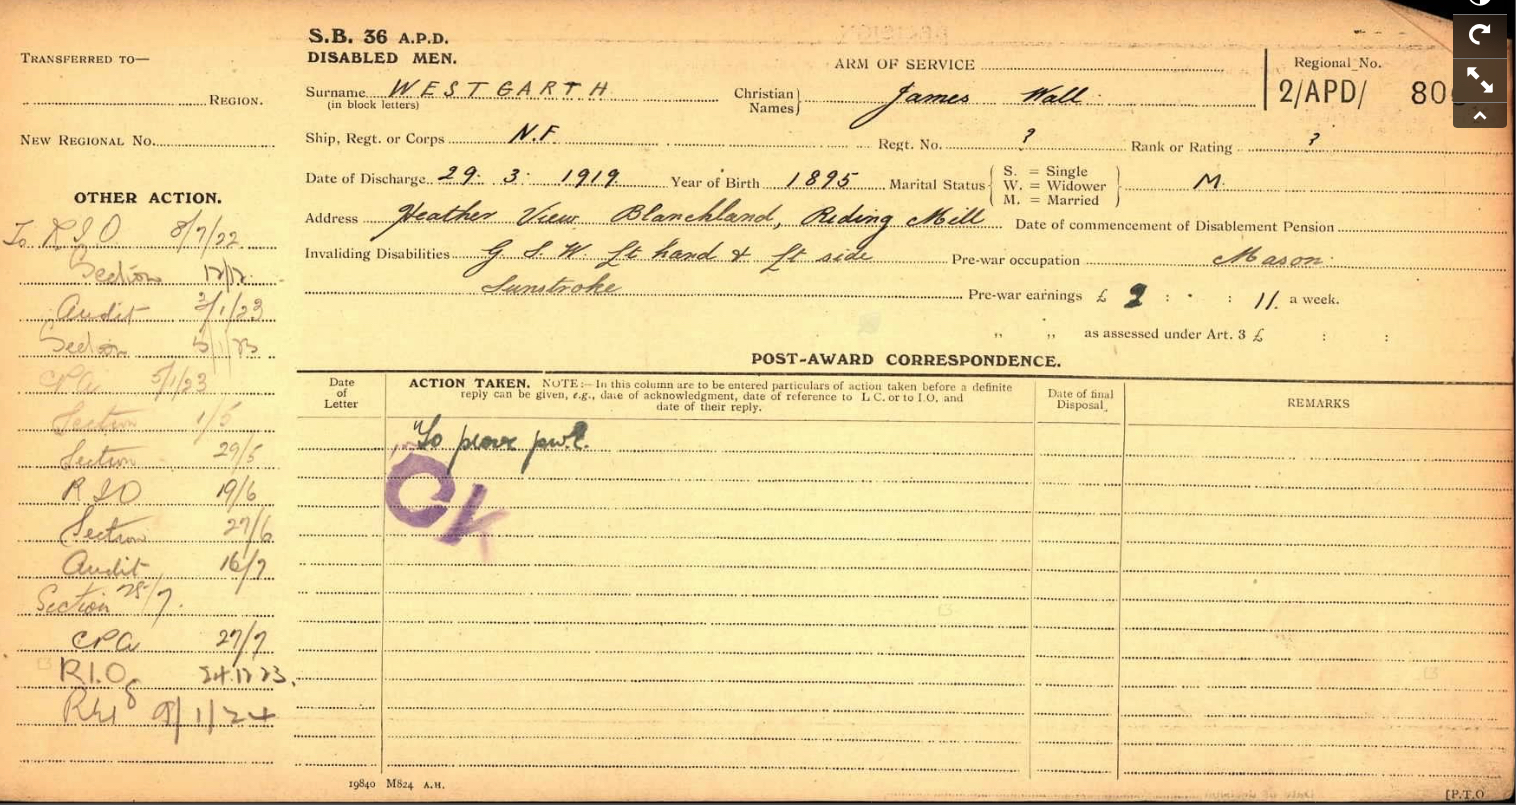 S.B. 36 A.P.D.
DISABLED MEN.
TRANSFERRED TO—
REGION.
NEW REGIONAL No.
ARM OF SERVICE
Regional No.
2/APD/ 80
Surname WESTGARTH
(in block letters)
Christian Names} James Wall
Ship, Regt. or Corps N.F. Regt. No. ? Rank or Rating ?
Date of Discharge 29. 3. 1919 Year of Birth 1895 Marital Status { S. = Single
W. = Widower
M. = Married } M.
Address Heather View Blanchland, Riding Mill Date of commencement of Disablement Pension
Invaliding Disabilities G S. W. Lt hand & Lt side Pre-war occupation Mason.
Sunstroke Pre-war earnings £ 2 : . : 11. a week.
,, ,, as assessed under Art. 3 £ : :
OTHER ACTION.
To R I O 8/7/22
Section
Audit 3/1/23
Section
CPA 5/1/23
Section 1/5
Section 29/5
R I O 19/6
Section 27/6
Audit 16/7
Section 25/7.
CPA 27/7
R.I.O. 24.12.23.
9/1/24
POST-AWARD CORRESPONDENCE.
Date
of
Letter
ACTION TAKEN. NOTE:—In this column are to be entered particulars of action taken before a definite
reply can be given, e.g., date of acknowledgment, date of reference to L.C. or to I.O. and
date of their reply.
Date of final
Disposal.
REMARKS
To prove pwe.
OK
19840 M824 A.H.
[P.T.O